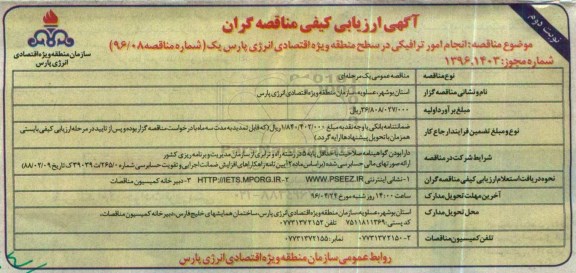 نوبت دوم
آگهی ارزیابی کیفی مناقصه گران
موضوع مناقصه: انجام امور ترافیکی در سطح منطقه ویژه اقتصادی انرژی پارس یک (شماره مناقصه ۹۶/۰۸)
شماره مجوز: ۱۳۹۶.۱۴۰۳
سازمان منطقه ویژه اقتصادی
انرژی پارس
نوع مناقصه
مناقصه عمومی یک مرحله ای
نام و نشانی مناقصه گزار
استان بوشهر، عسلویه، سازمان منطقه ویژه اقتصادی انرژی پارس
مبلغ برآورد اولیه
۳۶/۸۰۸/۰۲۷/۰۰۰ ریال
نوع و مبلغ تضمین فرایند ارجاع کار
ضمانتنامه بانکی یا وجه نقد به مبلغ ۱/۸۴۰/۴۰۲/۰۰۰ ریال (که قابل تمدید به مدت سه ماه با درخواست مناقصه گزار بوده و پس از تایید در مرحله ارزیابی کیفی بایستی
همزمان با تحویل پیشنهادها ارایه گردد.)
شرایط شرکت در مناقصه
دارا بودن گواهینامه صلاحیت با حداقل پایه ۵ در رشته راه و ترابری از سازمان مدیریت و برنامه ریزی کشور
ارائه صورتهای مالی حسابرسی شده (بر اساس ماده ۲ آیین نامه راهکارهای افزایش ضمانت اجرایی و تقویت حسابرسی شماره
نحوه دریافت استعلام ارزیابی کیفی مناقصه گران
۱- نشانی اینترنتی WWW.PSEEZ.IR ۲- HTTP://IETS.MPORG.IR ۳- دبیرخانه کمیسیون مناقصات
آخرین مهلت تحویل مدارک
ساعت ۱۴:۰۰ روز شنبه مورخ ۹۶/۰۴/۲۴
محل تحویل مدارک
استان بوشهر، عسلویه، سازمان منطقه ویژه اقتصادی انرژی پارس، ساختمان همایشهای خلیج فارس، دبیرخانه کمیسیون مناقصات.
کد پستی: ۷۵۱۱۸۱۱۳۶۹ تلفن ۰۷۷۳۱۳۷۲۱۵۲
تلفن کمیسیون مناقصات
۰۷۷۳۱۳۷۲۱۵۰-۲ نمابر: ۰۷۷۳۱۳۷۲۱۵۵
روابط عمومی سازمان منطقه ویژه اقتصادی انرژی پارس